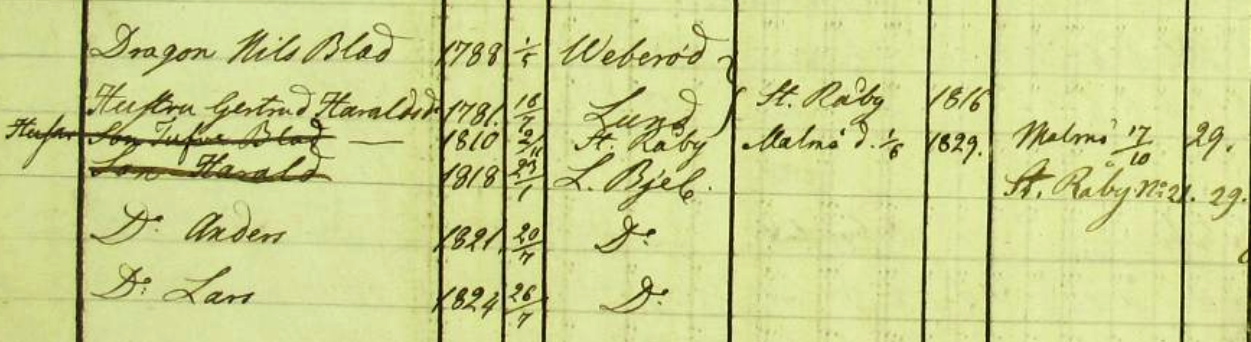 Dragon Nils Blad 1788 1/5 Weberöd
Hustru Gertrud Haraldsd. 1781. 18/7 Lund St. Råby 1816
Husar Son Tufve Blad — 1810 2/11 St. Råby Malmö d. 1/6 1829. Malmö 17/10 29.
Son Harald 1818 23/1 L. Bjel. St. Råby No: 21. 29.
Do Anders 1821. 20/7 Do
Do Lars 1824 26/7 Do